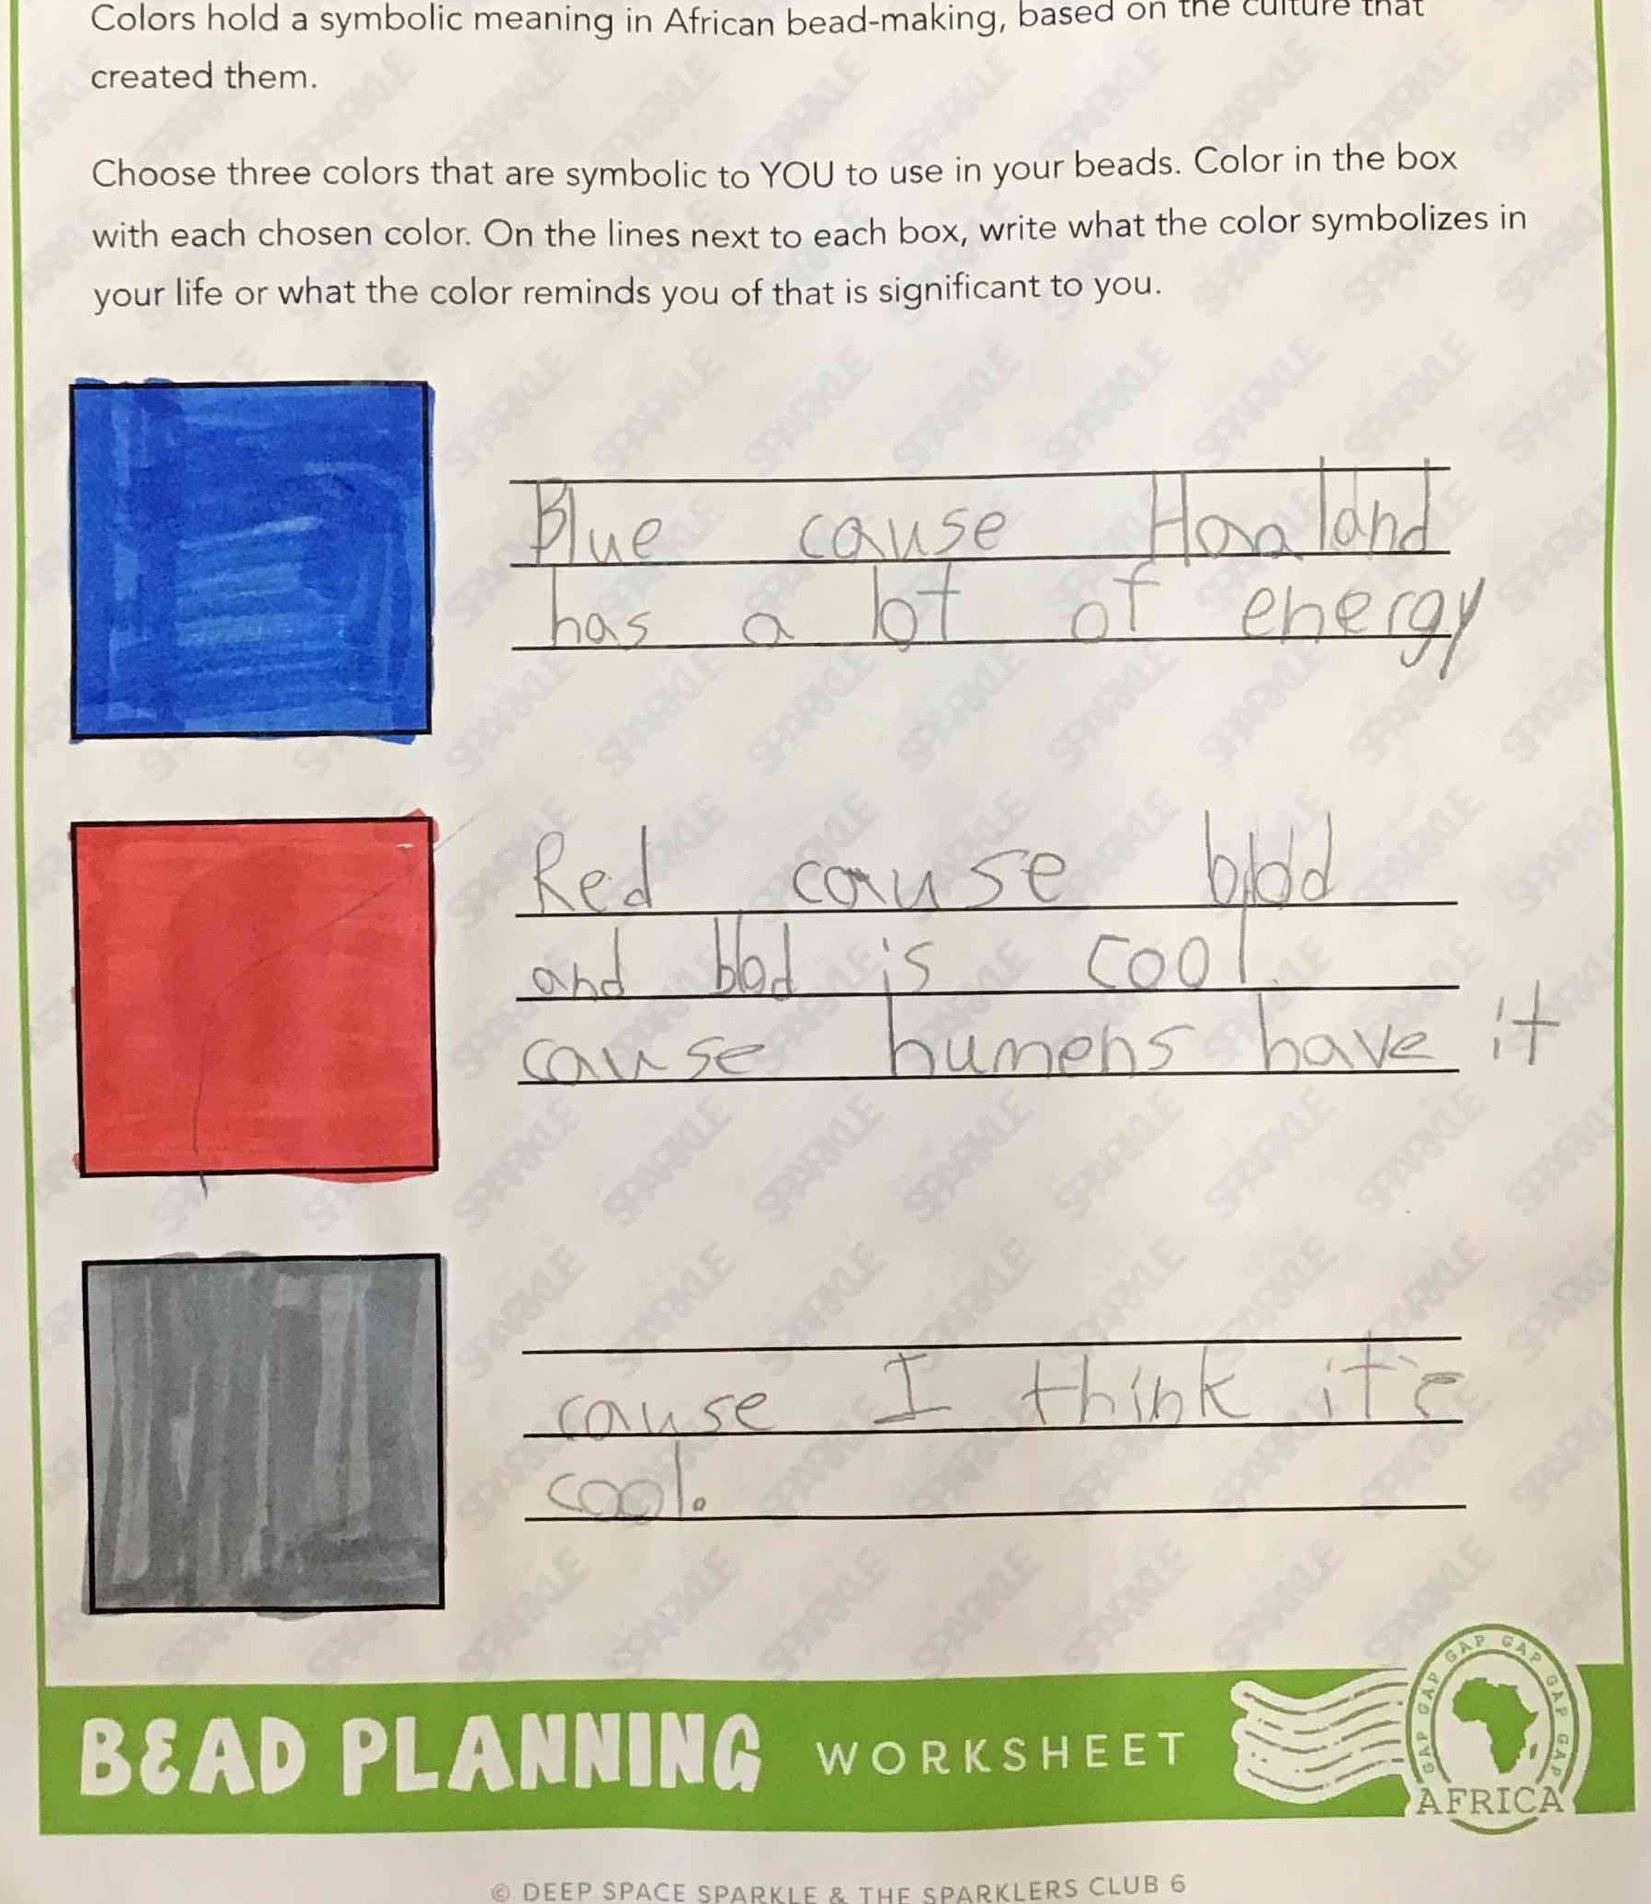 Colors hold a symbolic meaning in African bead-making, based on the culture that
created them.
Choose three colors that are symbolic to YOU to use in your beads. Color in the box
with each chosen color. On the lines next to each box, write what the color symbolizes in
your life or what the color reminds you of that is significant to you.
Blue cause Haaland
has a lot of energy
Red cause blood
and blood is cool
cause humens have it
cause I think it's
cool.
BEAD PLANNING WORKSHEET
GAP GAP GAP GAP GAP GAP GAP
AFRICA
© DEEP SPACE SPARKLE & THE SPARKLERS CLUB 6